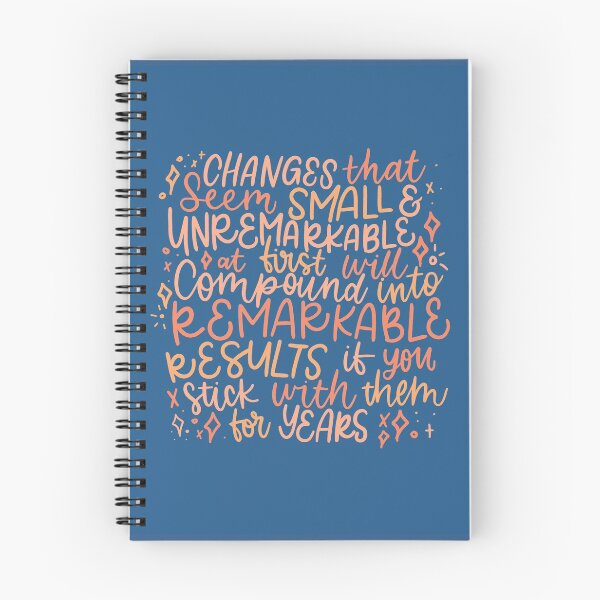 CHANGES that
seem SMALL &
UNREMARKABLE
at first will
Compound into
REMARKABLE
RESULTS if you
stick with them
for YEARS